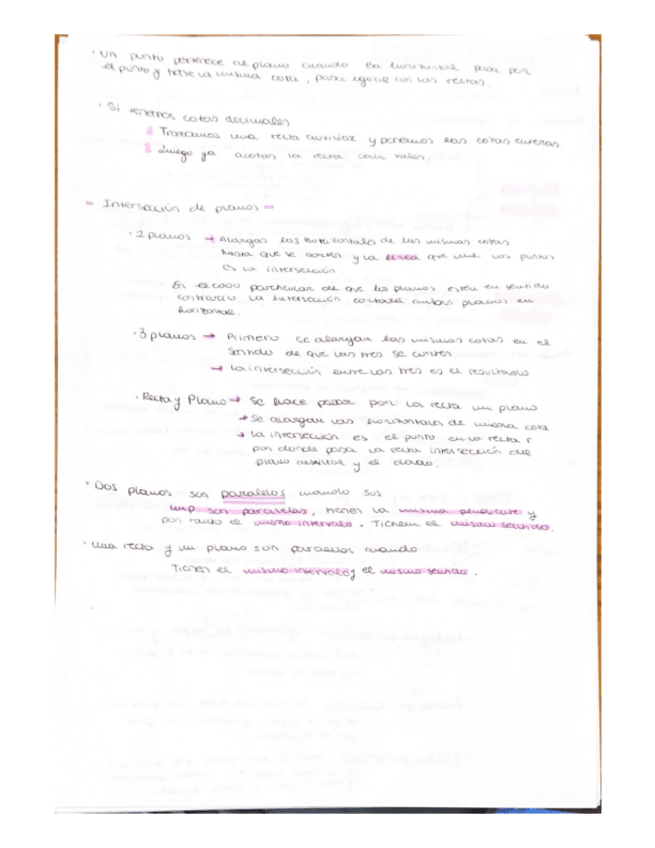 · Un punto pertenece al plano cuando la horizontal pasa por
el punto y tiene la misma cota, pasa igual con las rectas.
· Si tenemos cotas decimales
Trazamos una recta auxiliar y ponemos las cotas enteras.
Luego ya acotas la recta con
- Intersección de planos -
· 2 planos → Alargas las horizontales de las mismas cotas
hasta que se corten y la línea que une los puntos
es la intersección.
En el caso particular de que los planos estén en sentido
contrario la intersección cortará ambos planos en
horizontal.
· 3 planos → Primero se alargan las mismas cotas en el
sentido de que las tres se corten
→ La intersección entre las tres es el resultado
· Recta y Plano → Se hace pasar por la recta un plano
→ Se alargan las horizontales de misma cota
→ La intersección es el punto en la recta r
por donde pasa la recta intersección del
plano auxiliar y el dado.
· Dos planos son paralelos cuando sus
lmp son paralelas, tienen la misma pendiente y
por tanto el mismo intervalo. Tienen el mismo sentido.
· Una recta y un plano son paralelos cuando
Tienen el mismo intervalo y el mismo sentido.